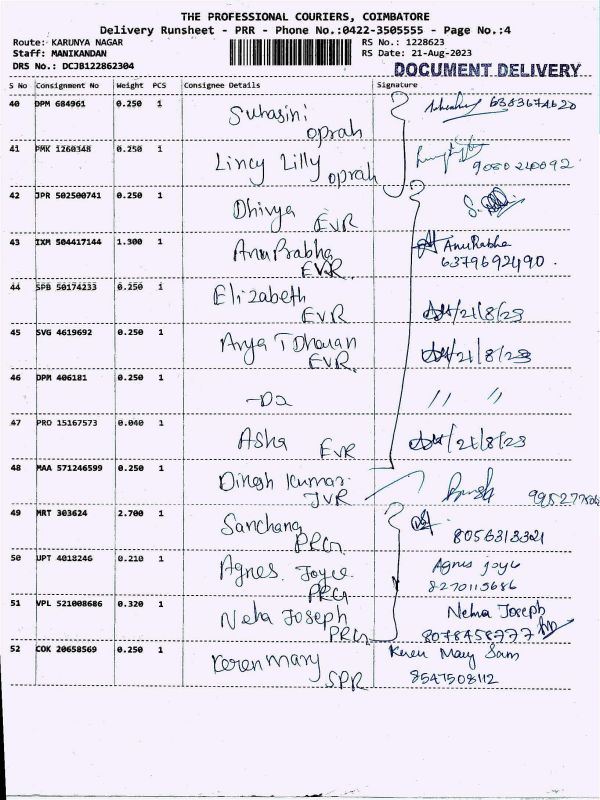 THE PROFESSIONAL COURIERS, COIMBATORE
Delivery Runsheet - PRR - Phone No.:0422-3505555 - Page No.:4
Route: KARUNYA NAGAR RS No.: 1228623
Staff: MANIKANDAN RS Date: 21-Aug-2023
DRS No.: DCJB122862304 DOCUMENT DELIVERY
S No Consignment No Weight PCS Consignee Details Signature
40 DPM 684961 0.250 1 Suhasini 6383674620
oprah
41 PMK 1260348 0.250 1 Lincy Lilly
oprah 9080240092
42 JPR 502500741 0.250 1 Dhivya
EVR
43 IXM 504417144 1.300 1 Anu Prabha AnuPrabha
EVR 6379692490.
44 SPB 50174233 0.250 1 Elizabeth
EVR 21/8/23
45 SVG 4619692 0.250 1 Arya T Dhavan
EVR 21/8/23
46 DPM 406181 0.250 1 -Do " "
47 PRO 15167573 0.040 1 Asha
EVR 21/8/23
48 MAA 571246599 0.250 1 Dinesh Kumar
JVR
49 MRT 303624 2.700 1 Sanchana
PRG 8056313321
50 UPT 4018246 0.210 1 Agnes. Joyce Agnes joyce
PRG 8270115686
51 VPL 521008686 0.320 1 Neha Joseph Neha Joseph
PRG 8078458777
52 COK 20658569 0.250 1 Keren Mary Keren Mary Sam
SPR 8547508112